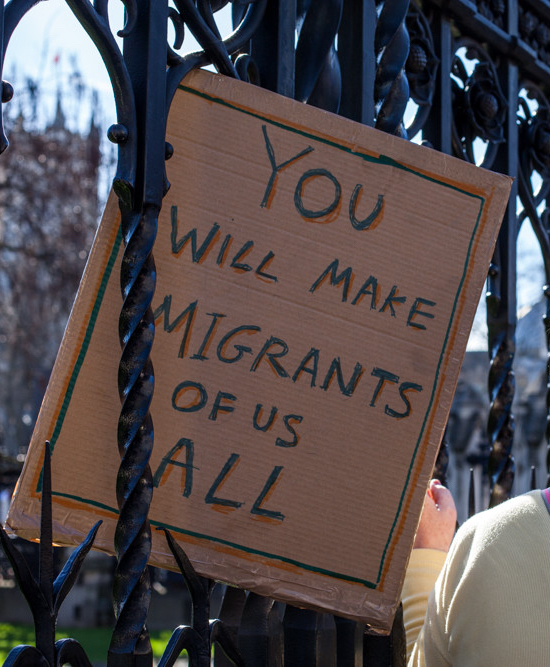 YOU
WILL MAKE
MIGRANTS
OF US
ALL